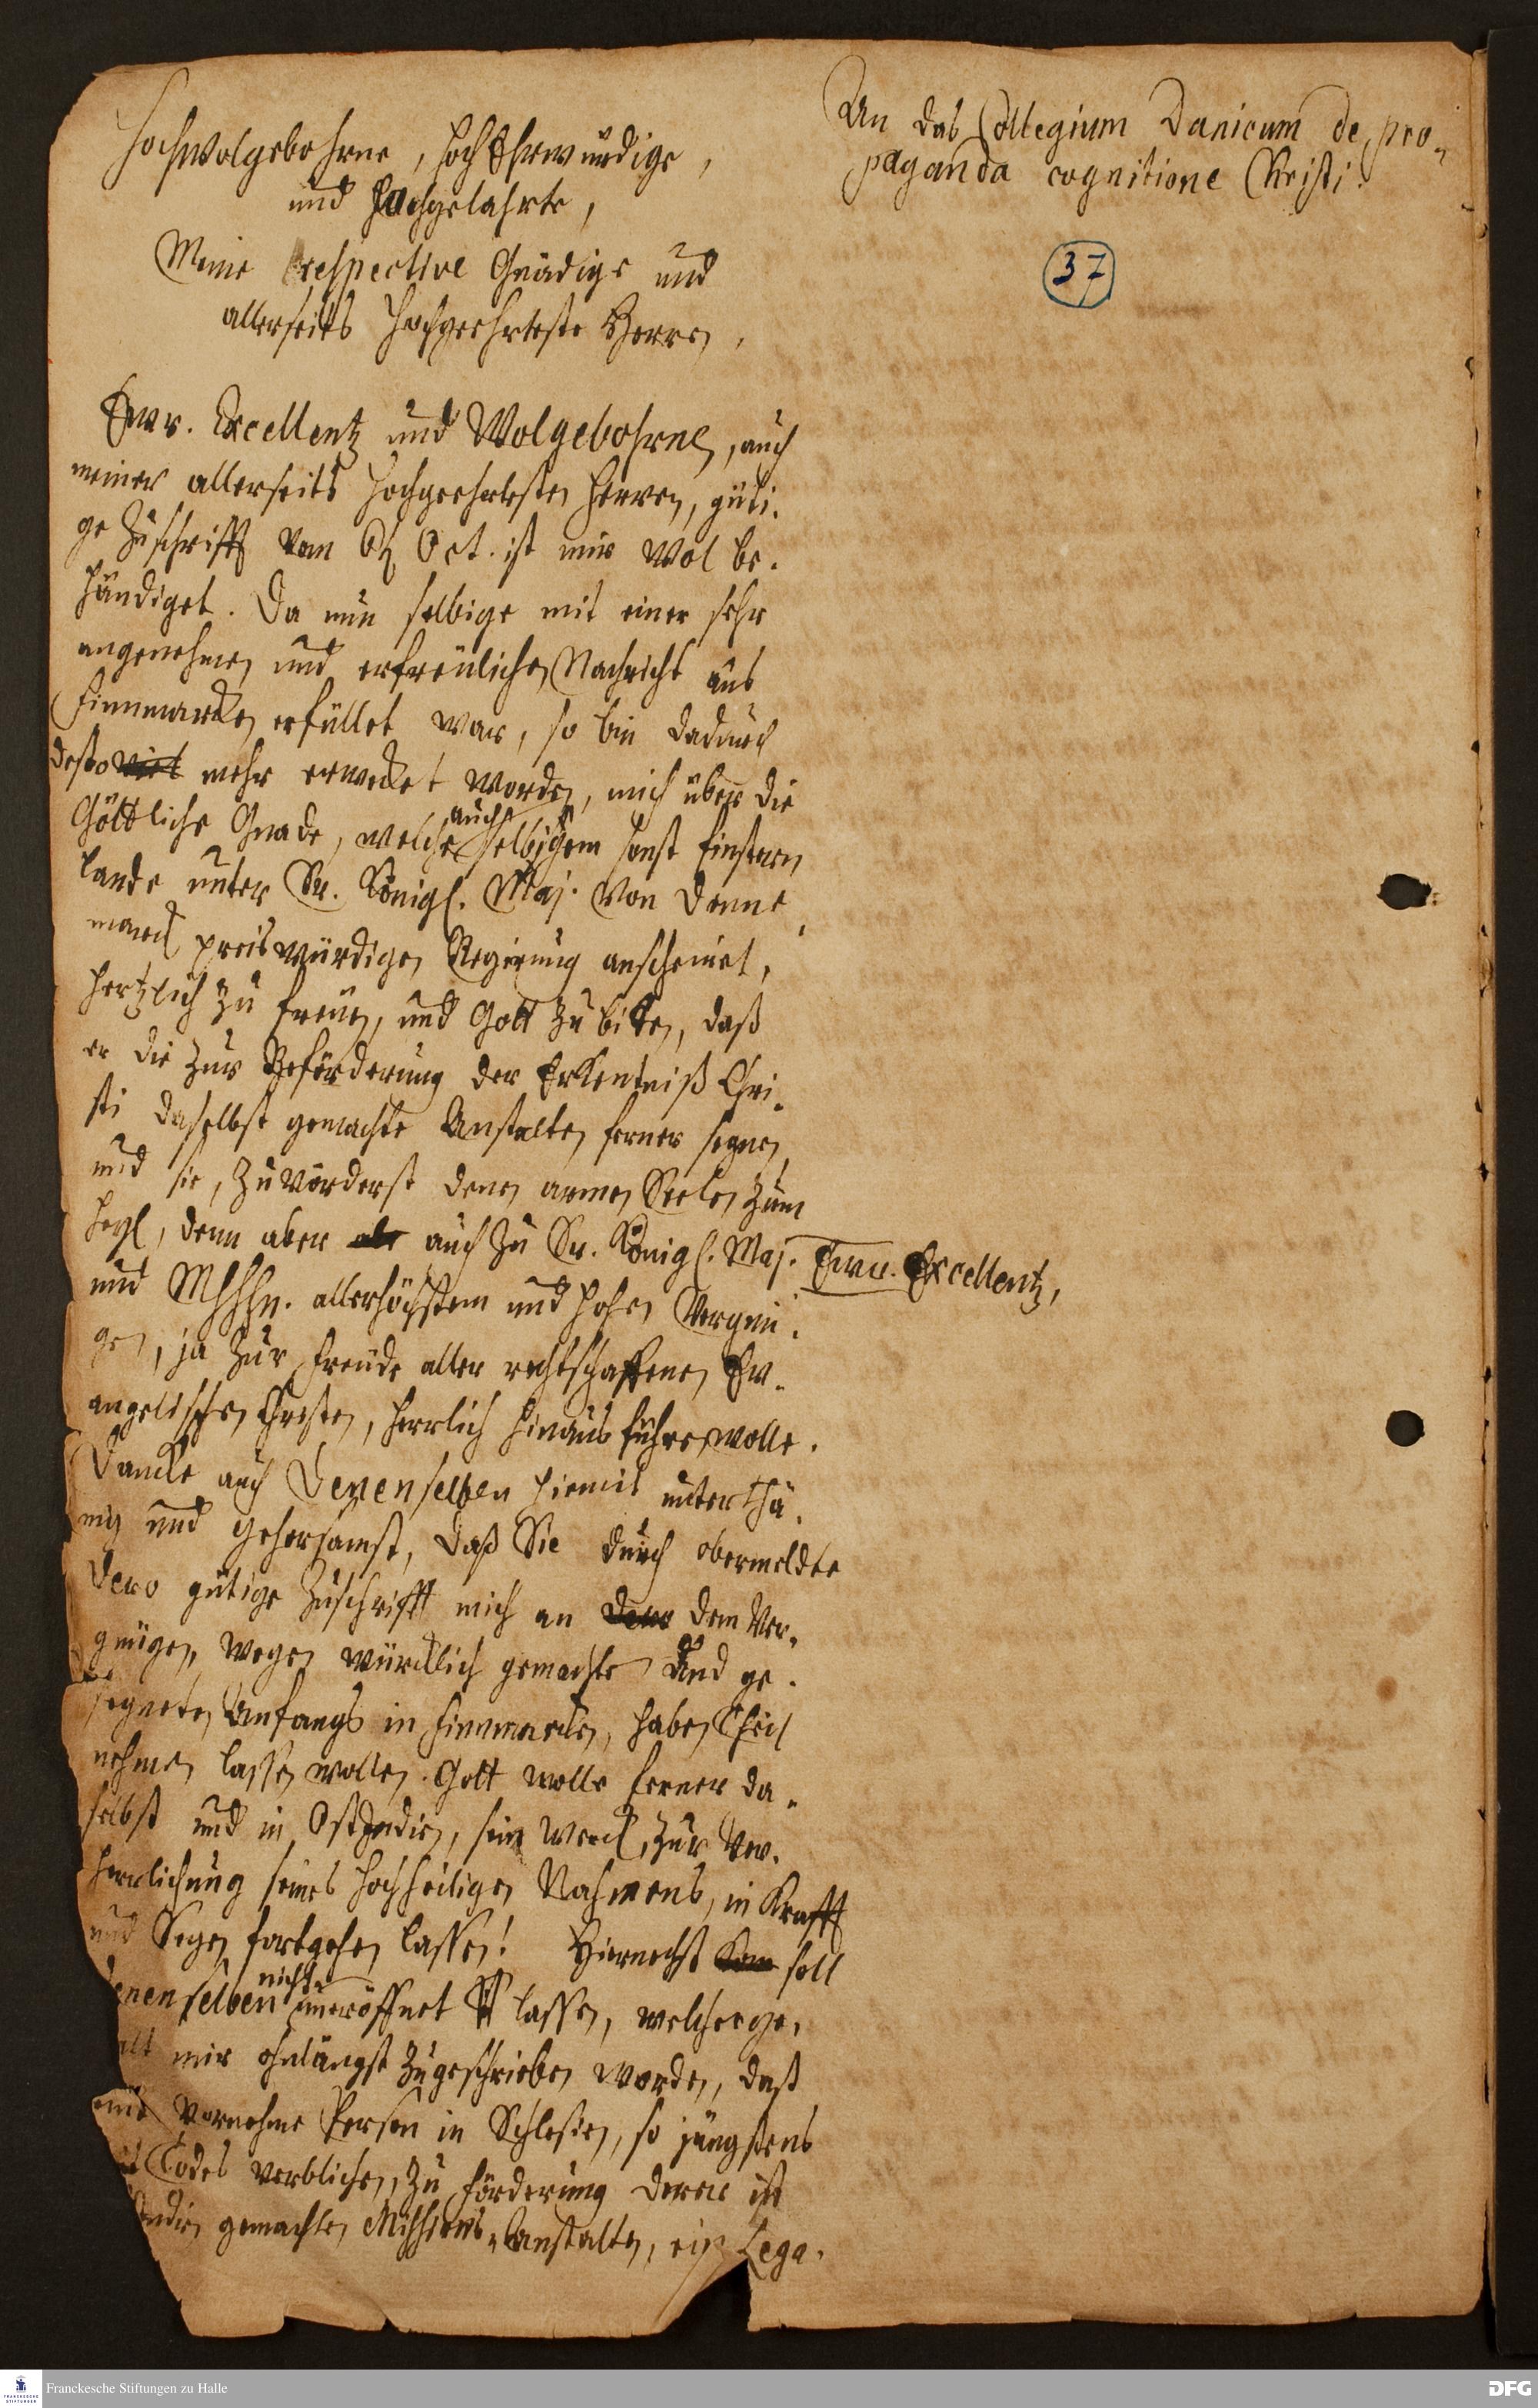 An das Collegium Danicum de pro-
paganda cognitione Christi.
37
Hochwolgebohrne, HochEhrwürdige,
und Hochgelahrte,
Meine respective Gnädige und
allerseits Hochgeehrteste Herren,
Ewr. Excellentz und Wolgebohrnen, auch
meiner allerseits Hochgeehrtesten Herren, güti-
ge Zuschrifft vom Oct. ist mir wol be-
händiget. Da nun selbige mit einer sehr
angenehmen und erfreulichen Nachricht aus
Finnmarcken erfüllet war, so bin dadurch
desto viel mehr erwecket worden, mich über die
Göttliche Gnade, welche auch selbigem sonst finstern
Lande unter Sr. Königl. Maj. von Denne-
marck preiswürdigen Regierung anscheinet,
hertzlich zu freuen, und Gott zu bitten, daß
er die zur Beförderung der Erkentniß Chri-
sti daselbst gemachte Anstalten ferner segnen,
und sie, zuvörderst denen armen Seelen zum
Heyl, denn aber als auch zu Sr. Königl. Maj. Ewr. Excellentz,
und MHHln. allerhöchstem und hohen Vergnü-
gen, ja zur Freude aller rechtschaffenen Ev-
angelischen Christen, herrlich hinaus führen wolle.
Dancke auch Denenselben hiemit unterthä-
nig und gehorsamst, daß Sie durch obermeldte
Dero gütige Zuschrifft mich an dero dem Ver-
gnügen, wegen würcklich gemachten und ge-
segneten Anfangs in Finnmarcken, haben Theil
nehmen lassen wollen. Gott wolle ferner da-
selbst und in OstIndien, sein Werck, zur Ver-
herrlichung seines hochheiligen Nahmens, in Krafft
und Segen fortgehen lassen! Hiernechst kan soll
denenselben nicht uneröffnet lassen, welcherge-
alt mir ohnlängst zugeschrieben worden, daß
eine vornehme Person in Schlesien, so jüngstens
Todes verblichen, zu Förderung derer in
Indien gemachten Missions-Anstalten, ein Lega-
Franckesche Stiftungen zu Halle
DFG